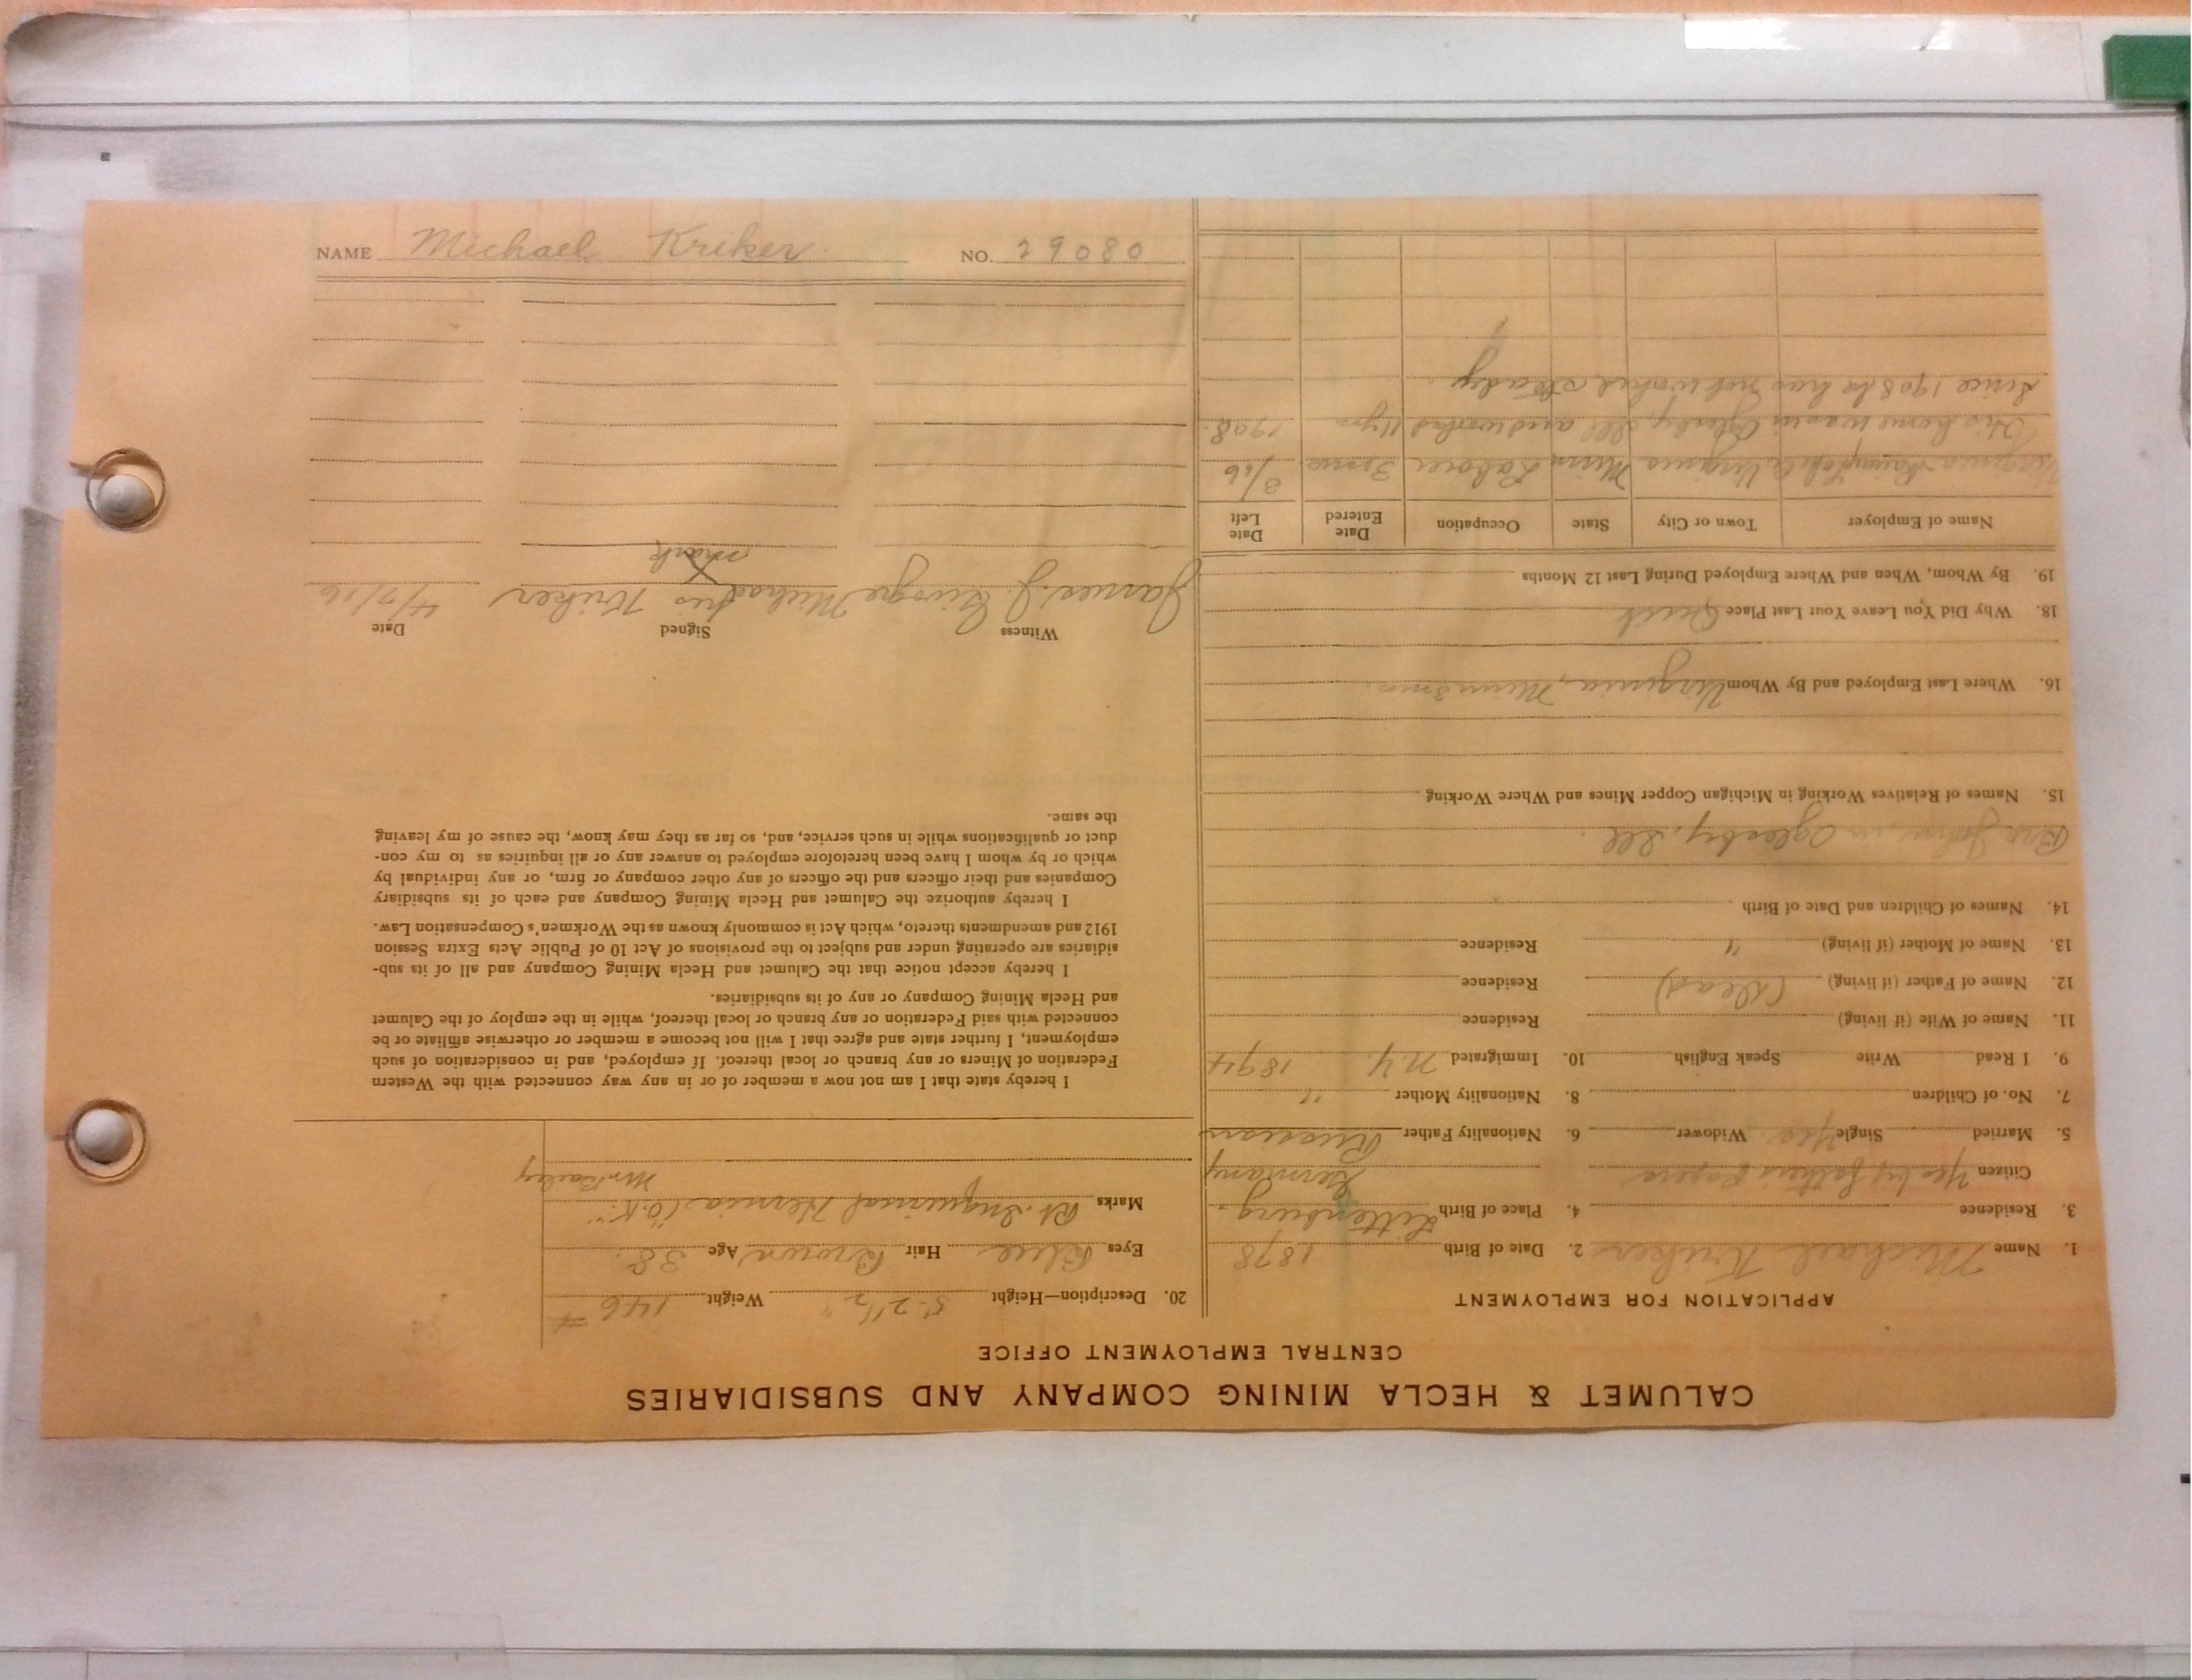 NAME Michael Kriker NO. 29080
CALUMET & HECLA MINING COMPANY AND SUBSIDIARIES
CENTRAL EMPLOYMENT OFFICE
APPLICATION FOR EMPLOYMENT
1. Name Michael Kriker 2. Date of Birth 1878
3. Residence 4. Place of Birth
Citizen Yes by father's papers Germany
5. Married Single Yes. Widower 6. Nationality Father Russian
7. No. of Children 8. Nationality Mother "
9. I Read Write Speak English 10. Immigrated N.Y. 1894
11. Name of Wife (if living) Residence
12. Name of Father (if living) (dead) Residence
13. Name of Mother (if living) " Residence
14. Names of Children and Date of Birth
Bro. John, in Oglesby, Ill.
15. Names of Relatives Working in Michigan Copper Mines and Where Working
16. Where Last Employed and By Whom Virginia, Minn 3 mos.
18. Why Did You Leave Your Last Place Quit
19. By Whom, When and Where Employed During Last 12 Months
Name of Employer Town or City State Occupation Date Entered Date Left
Virginia Rainy Lake Co Virginia Minn Laborer 3 mos. 3/16
(His home was in Oglesby, Ill and worked 11 yrs 1908.
Since 1908 he has not worked steady.
20. Description—Height 5' 2 1/2" Weight 146 #
Eyes Blue Hair Brown Age 38.
Marks Rt. Inguinal Hernia "O.K."
I hereby state that I am not now a member of or in any way connected with the Western
Federation of Miners or any branch or local thereof. If employed, and in consideration of such
employment, I further state and agree that I will not become a member or otherwise affiliate or be
connected with said Federation or any branch or local thereof, while in the employ of the Calumet
and Hecla Mining Company or any of its subsidiaries.
I hereby accept notice that the Calumet and Hecla Mining Company and all of its sub-
sidiaries are operating under and subject to the provisions of Act 10 of Public Acts Extra Session
1912 and amendments thereto, which Act is commonly known as the Workmen's Compensation Law.
I hereby authorize the Calumet and Hecla Mining Company and each of its subsidiary
Companies and their officers and the officers of any other company or firm, or any individual by
which or by whom I have been heretofore employed to answer any or all inquiries as to my con-
duct or qualifications while in such service, and, so far as they may know, the cause of my leaving
the same.
Witness Signed Date
James J. Michael his Kriker 4/7/16
X
mark